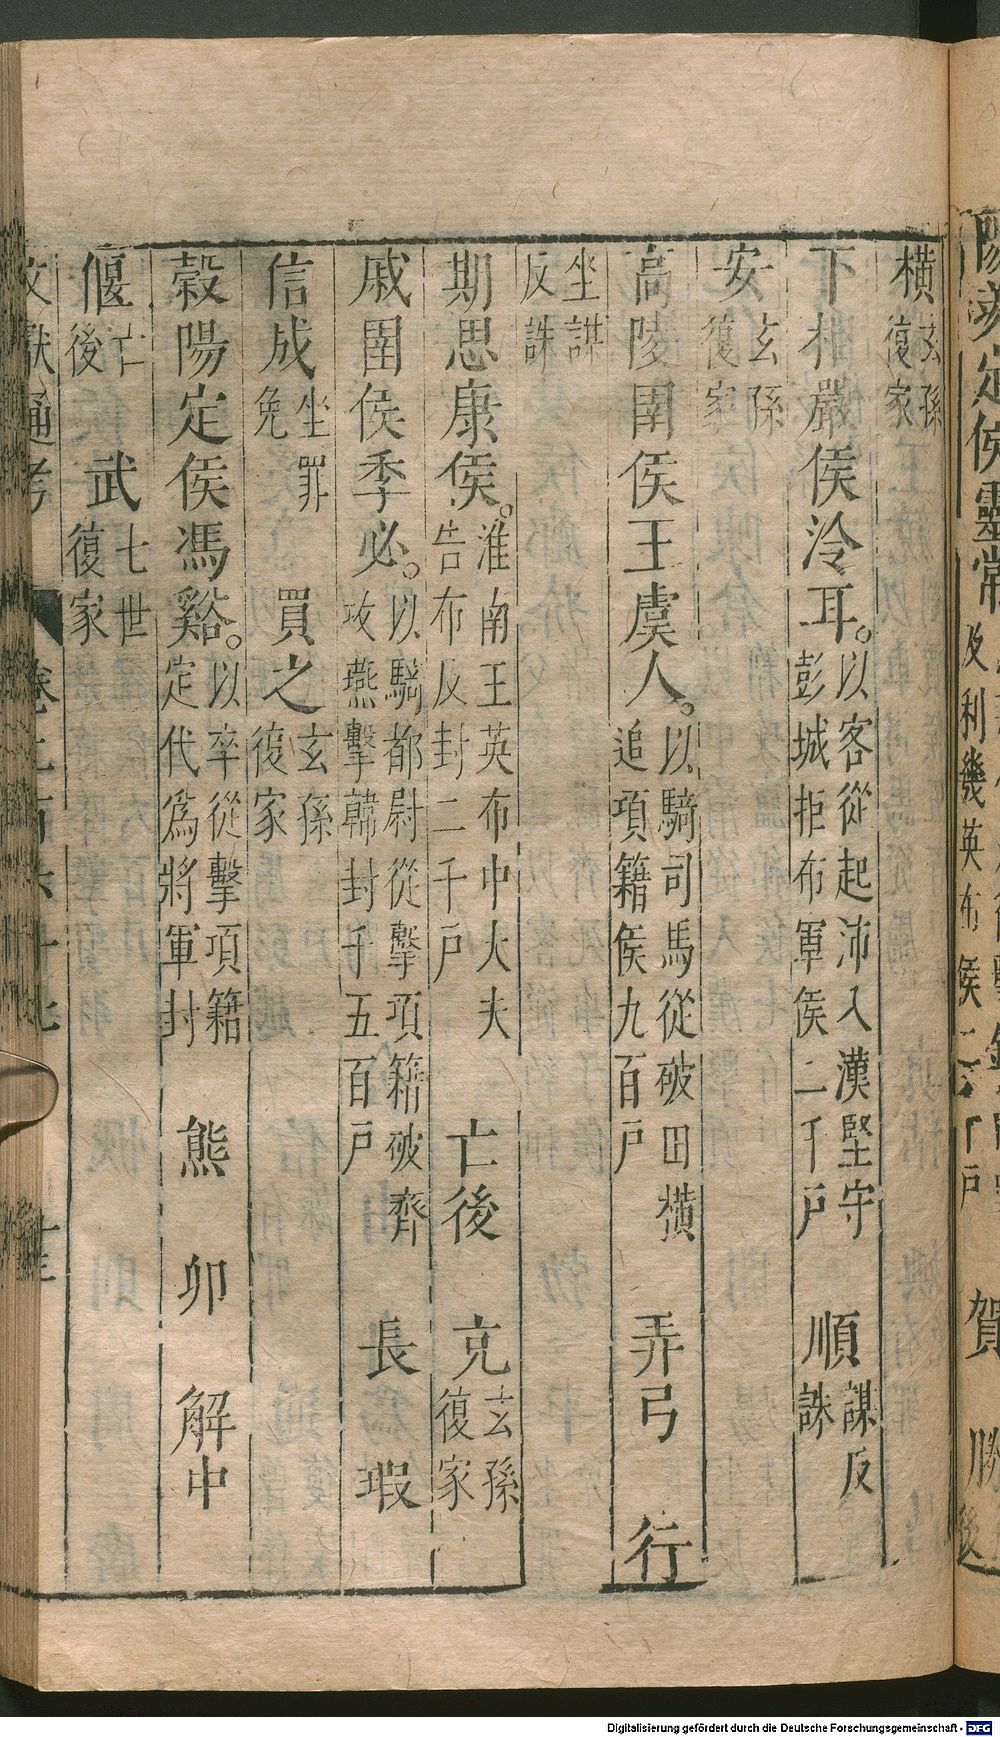 橫玄孫復家
下相嚴侯泠耳。以客從起沛入漢堅守彭城拒布軍侯二千戶 順謀反誅
安玄孫復家
高陵圉侯王虞人。以騎司馬從破田橫追項籍侯九百戶 弄弓 行
坐謀反誅
期思康侯。淮南王英布中大夫告布反封二千戶 亡後 克玄孫復家
戚圉侯季必。以騎都尉從擊項籍破齊攻燕擊韓封千五百戶 長 瑕
信成坐罪免 買之玄孫復家
穀陽定侯馮谿。以卒從擊項籍定代為將軍封 熊 卯 解中
偃亡後 武七世復家
文獻通考 卷二百六十七 十三
陽羨定侯靈常 及利幾英布侯二千戶 賀 勝
Digitalisierung gefördert durch die Deutsche Forschungsgemeinschaft - DFG